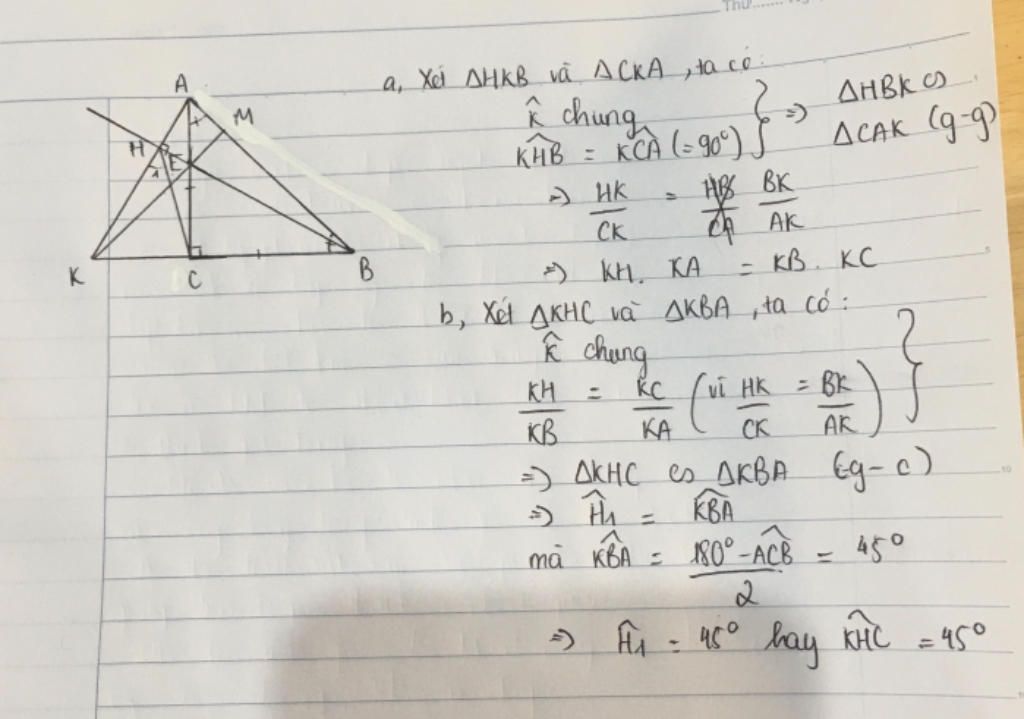 Thứ
a, Xét ΔHKB và ΔCKA, ta có:
K̂ chung
KHB^ = KCA^ (= 90°) } => ΔHBK ∽ ΔCAK (g-g)
=> HK/CK = BK/AK
=> KH. KA = KB. KC
b, Xét ΔKHC và ΔKBA, ta có:
K̂ chung
KH/KB = KC/KA (vì HK/CK = BK/AK) }
=> ΔKHC ∽ ΔKBA (g-c)
=> Ĥ1 = KBA^
mà KBA^ = (180° - ACB^)/2 = 45°
=> Ĥ1 = 45° hay KHC^ = 45°
A
M
H
E
1
K
C
B